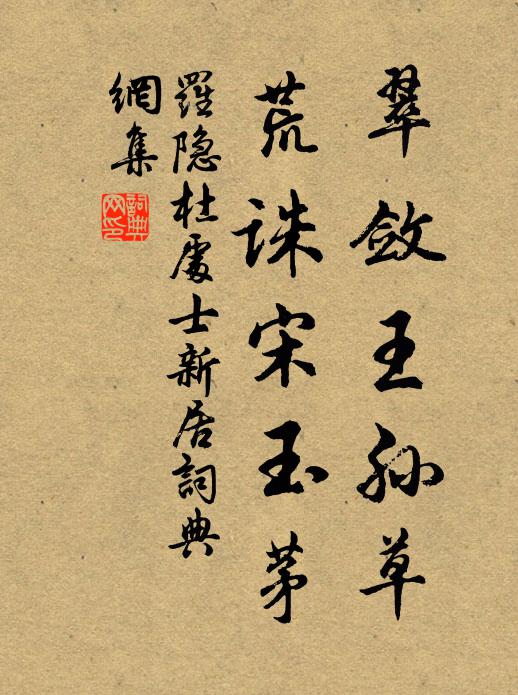 翠斂王孫草
荒誅宋玉茅
羅隐杜處士新居詞典
網集
詞典
网印